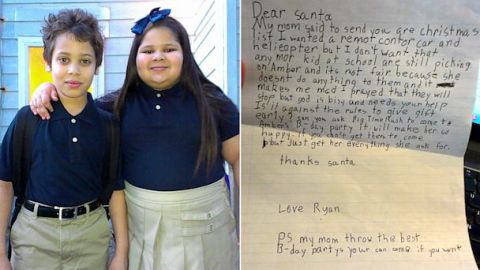 Dear santa
My mom said to send you are christmas
list I wanted a remot contor car and
helicopter but I don't want that
any mor kid at school are still picking
on Amber and its not fair because she
doesnt do anything to them and it
makes me mad I prayed that they will
stop but god is bisy and needs your help
Is it against the rules to give gift
early? can you ask Big Time Rush to come to
Ambers B-day party it will make her so
happy if you can't get them to come
but just get her everything she ask for.
thanks santa
Love Ryan
PS my mom throw the best
B-day partys your can come if you want